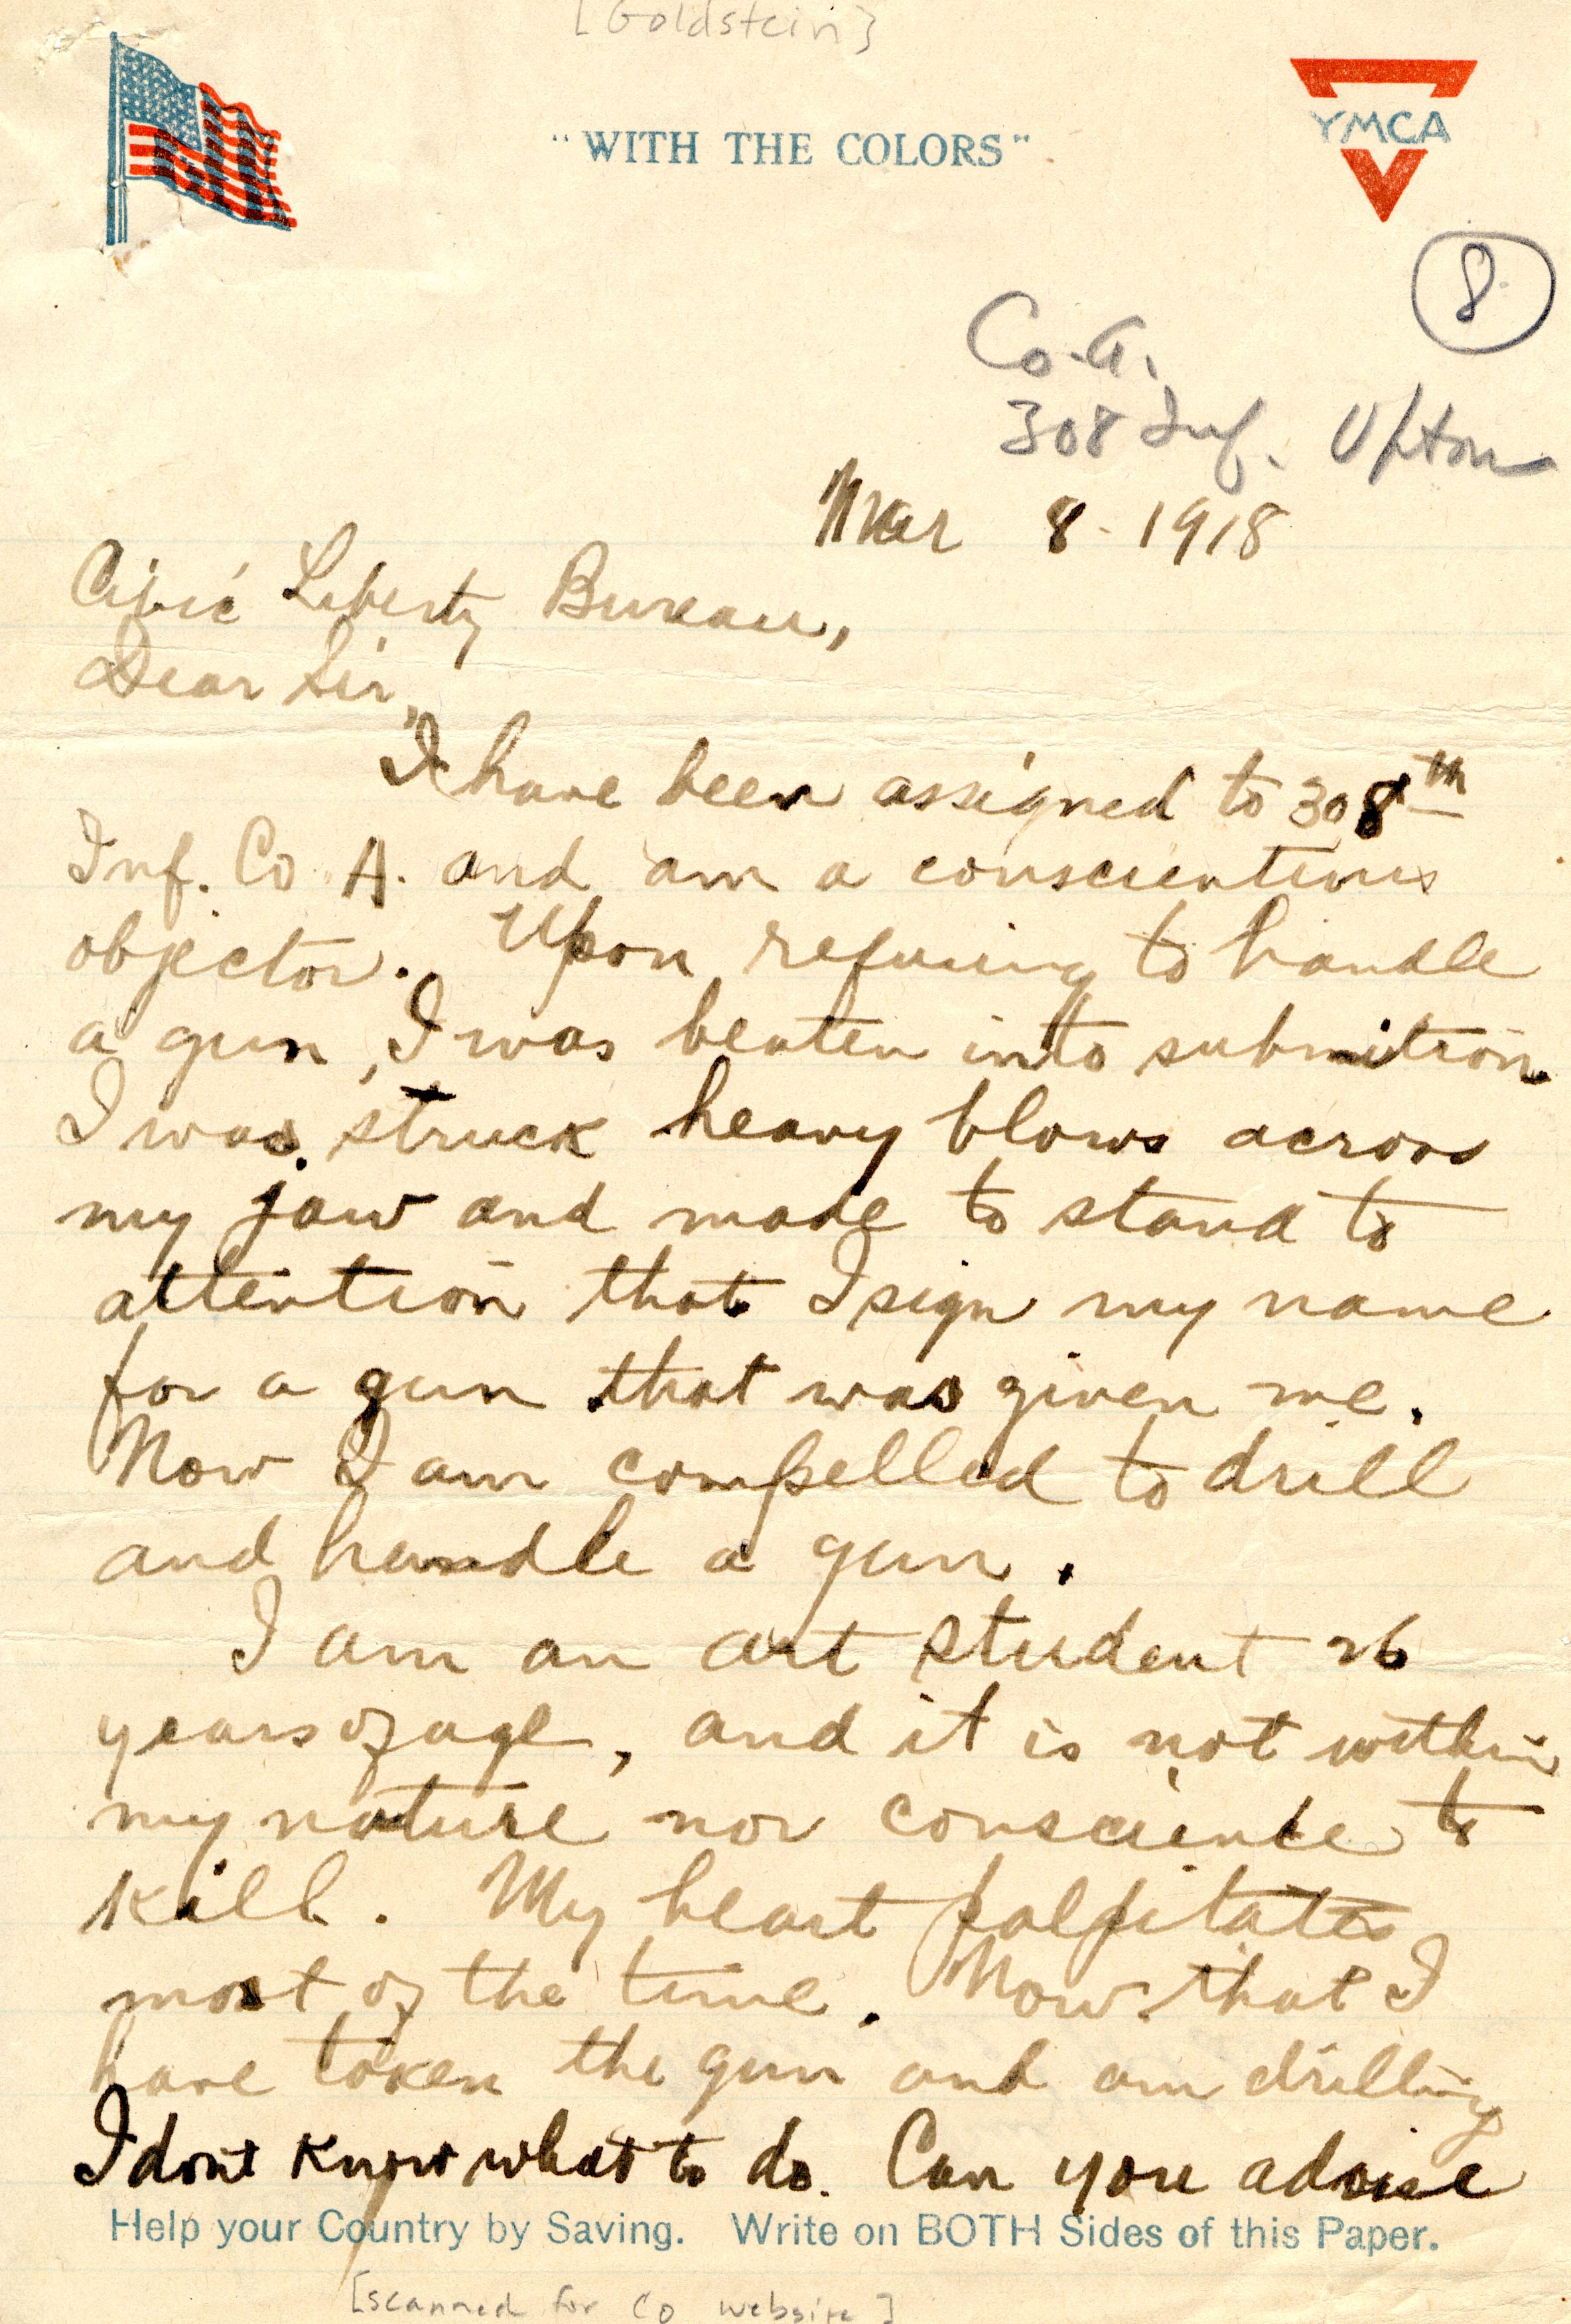 [Goldstein]
"WITH THE COLORS"
YMCA
8
Co. A.
308 Inf. Upton
Mar 8 - 1918
Civic Liberty Bureau,
Dear Sir,
I have been assigned to 308th
Inf. Co A. and am a conscientious
objector. Upon refusing to handle
a gun, I was beaten into submition.
I was struck heavy blows across
my jaw and made to stand to
attention that I sign my name
for a gun that was given me.
Now I am compelled to drill
and handle a gun.
I am an art student 26
years of age, and it is not within
my nature nor conscience to
kill. My heart palpitates
most of the time. Now that I
have taken the gun and am drilling
I dont know what to do. Can you advise
Help your Country by Saving. Write on BOTH Sides of this Paper.
[scanned for CO website]